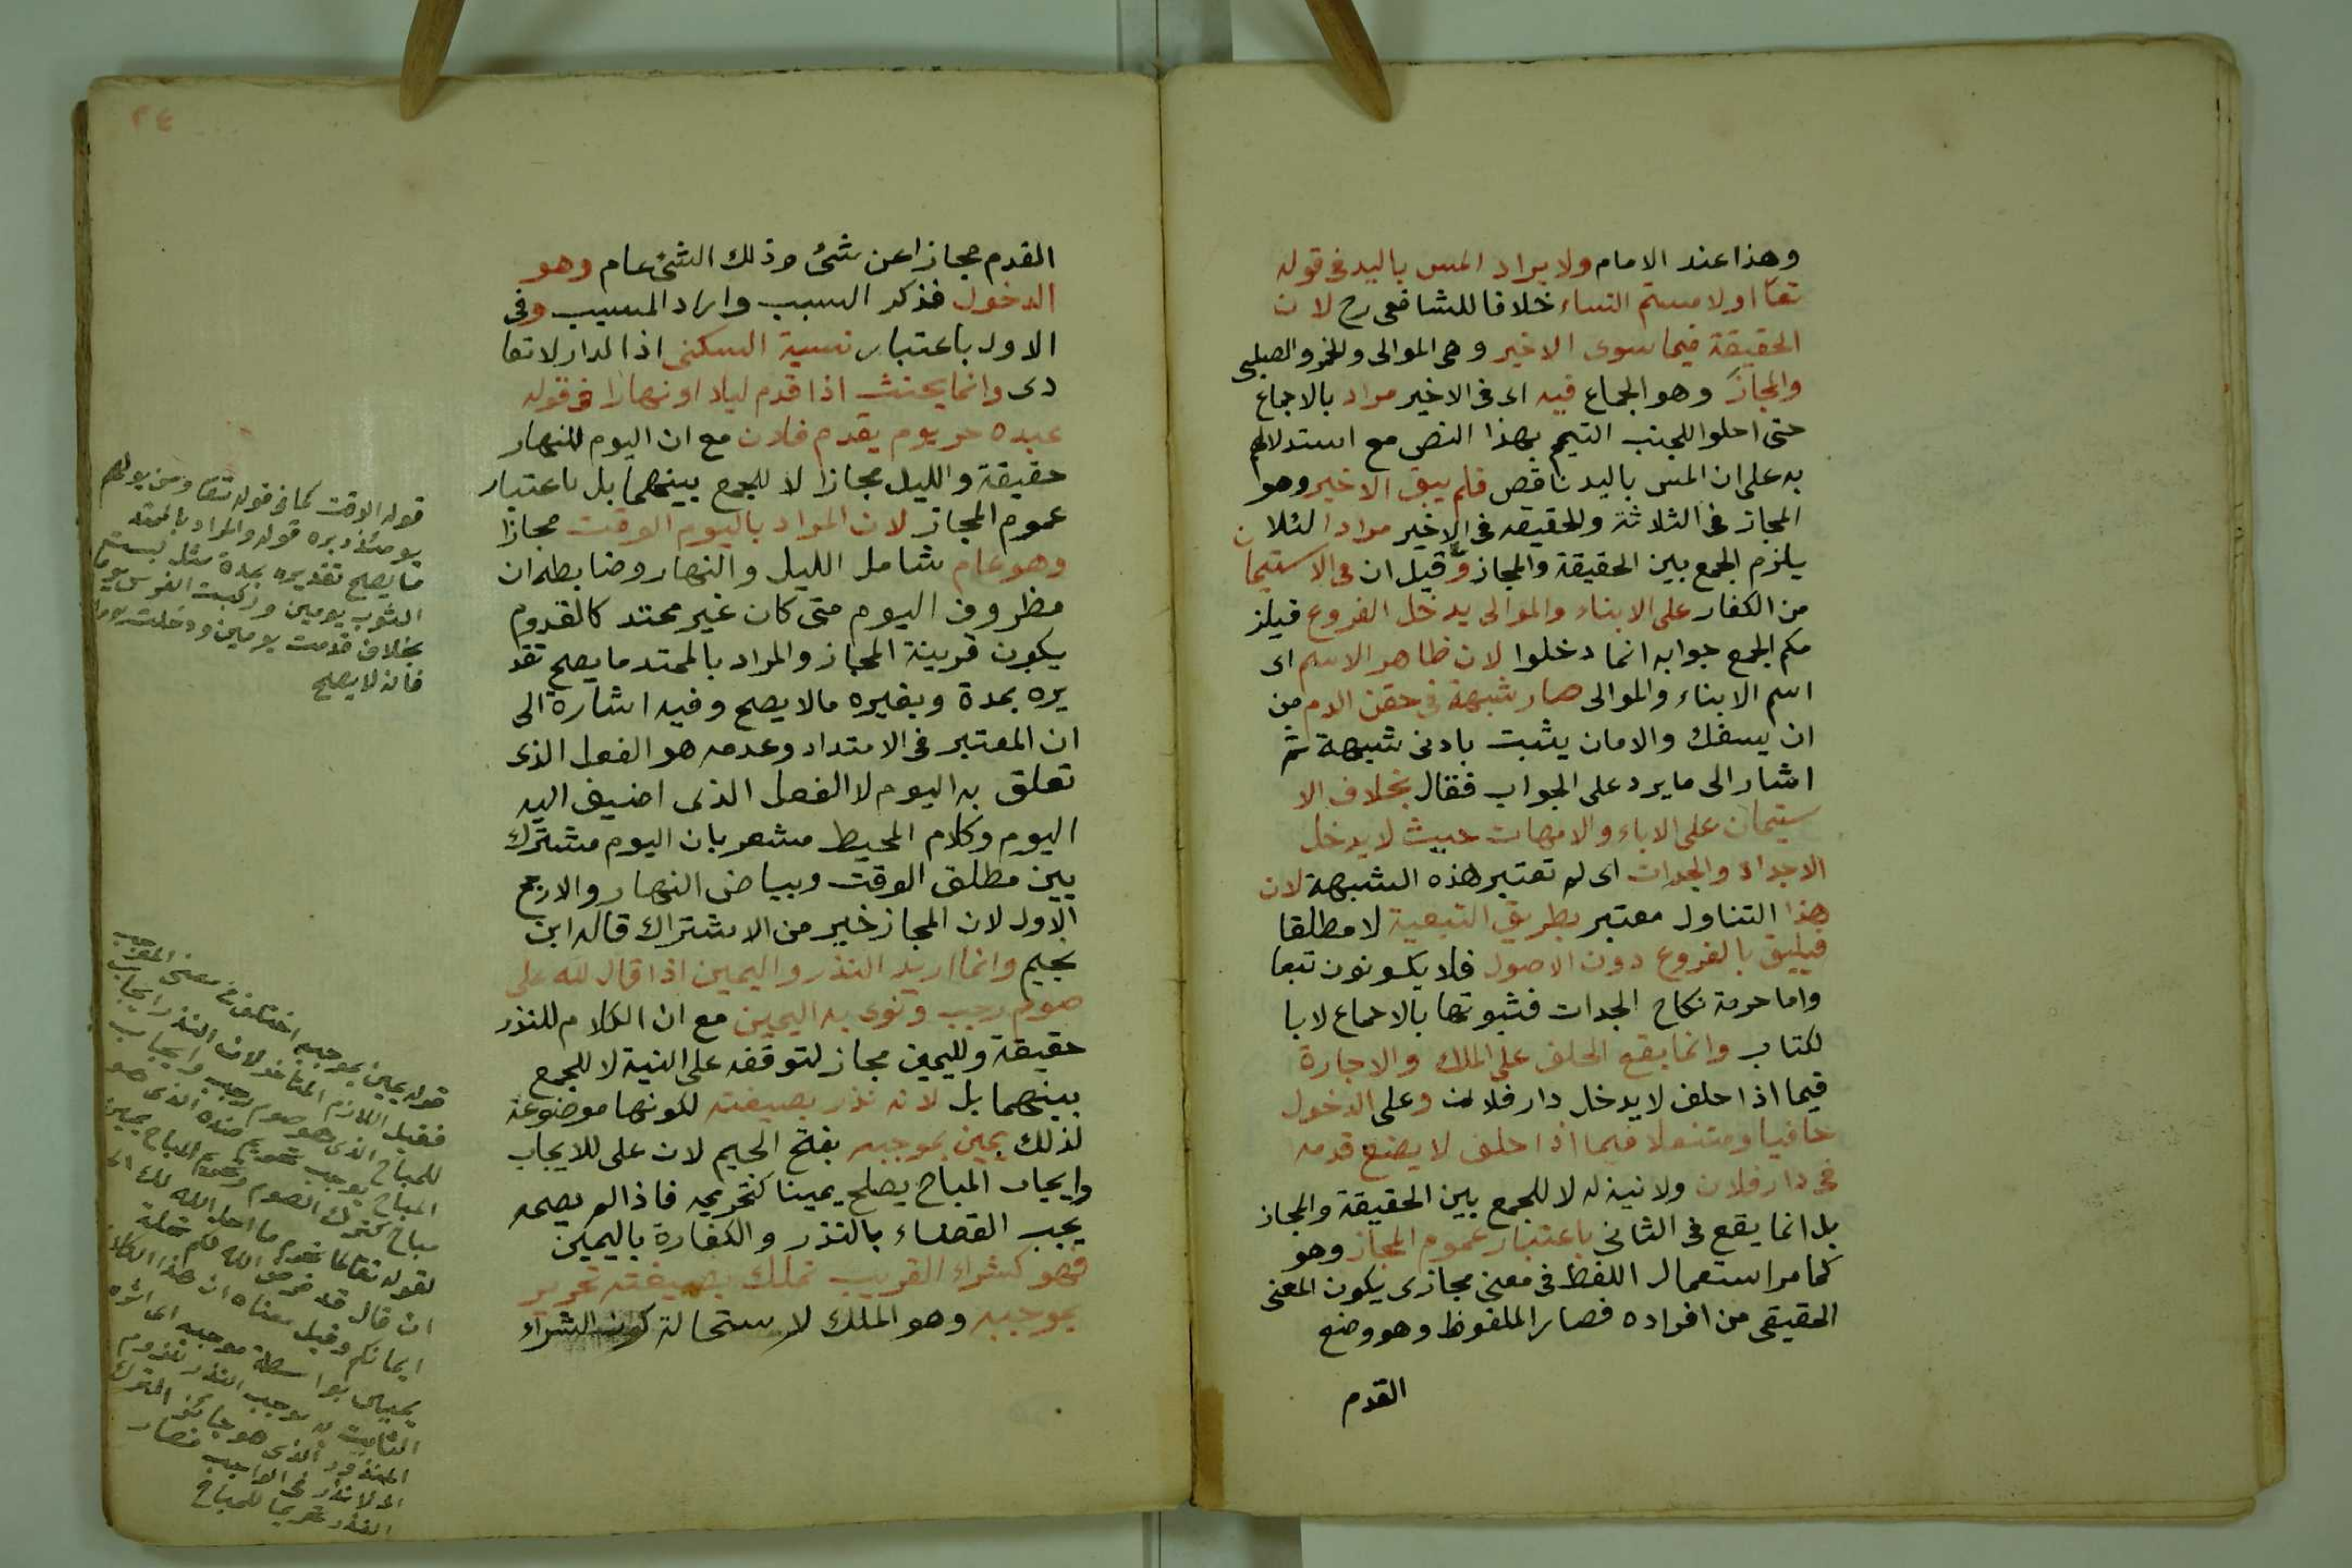 وهذا عند الامام ولا يراد المس باليد فى قوله
تعا او لا مستم النساء خلافا للشافعى رح لان
الحقيقة فيما سوى الاخير وهى الموالى والخمر والصلبى
والمجاز وهو الجماع فيه اى فى الاخير مراد بالاجماع
حتى احلوا للجنب التيمم بهذا النص مع استدلالهم
به على ان المس باليد ناقص فلم يبق الاخير وهو
المجاز فى الثلاثة والحقيقه فى الاخير مرادا لئلا ن
يلزم الجمع بين الحقيقة والمجاز وقيل ان فى الاستيما
من الكفار على الابناء والموالى يدخل الفروع فيلز
مكم الجمع جوابه انما دخلوا لان ظاهر الاسم اى
اسم الابناء والموالى صار شبهة فى حقن الدم من
ان يسفك والامان يثبت بادنى شبهة ثم
اشار الى ما يرد على الجواب فقال بخلاف الا
ستيمان على الاباء والامهات حيث لا يدخل
الاجداد والجدات اى لم تعتبر هذه الشبهة لان
هذا التناول معتبر بطريق التبعية لا مطلقا
فيليق بالفروع دون الاصول فلا يكونون تبعا
واما حرمة نكاح الجدات فثبوتها بالاجماع لا با
لكتاب وانما يقع الحلف على الملك والاجارة
فيما اذا حلف لا يدخل دار فلان وعلى الدخول
حافيا ومتنعلا فيما اذا حلف لا يضع قدمه
فى دار فلان ولا نية له لا للجمع بين الحقيقة والمجاز
بل انما يقع فى الثانى باعتبار عموم المجاز وهو
كما مر استعمال اللفظ فى معنى مجازى يكون المعنى
الحقيقى من افراده فصار الملفوظ وهو وضع
القدم
٢٤
القدم مجازا عن شئ وذلك الشئ عام وهو
الدخول فذكر السبب واراد المسبب وفى
الاول باعتبار نسبة السكنى اذا لدار لا تعا
دى وانما يحنث اذا قدم ليلا او نهارا فى قوله
عبده حر يوم يقدم فلان مع ان اليوم للنهار
حقيقة والليل مجازا لا للجمع بينهما بل باعتبار
عموم المجاز لان المراد باليوم الوقت مجازا
وهو عام شامل الليل والنهار وضابطه ان
مظروف اليوم متى كان غير ممتد كالقدوم
يكون قرينة المجاز والمراد بالممتد ما يصح تقد
يره بمدة وبغيره مالا يصح وفيه اشارة الى
ان المعتبر فى الامتداد وعدمه هو الفعل الذى
تعلق به اليوم لا الفعل الذى اضيف اليه
اليوم وكلام المحيط مشعر بان اليوم مشترك
بين مطلق الوقت وبياض النهار والارجح
الاول لان المجاز خير من الاشتراك قاله ابن
نجيم وانما اريد النذر واليمين اذا قال لله على
صوم رجب ونوى به اليمين مع ان الكلام للنذر
حقيقة ولليمين مجاز لتوقفه على النية لا للجمع
بينهما بل لانه نذر بصيغته لكونها موضوعة
لذلك يمين بموجبه بفتح الجيم لان على للايجاب
وايجاب المباح يصلح يمينا كتحريمه فاذا لم يصمه
يجب القضاء بالنذر والكفارة باليمين
فهو كشراء القريب تملك بصيغته تحرير
بموجبه وهو الملك لاستحالة كون الشراء
قوله الوقت كما فى قوله تعا ومن يولهم
يومئذ دبره قوله والمراد بالممتد
ما يصح تقديره بمدة مثل لبست
الثوب يومين وركبت الفرس يوما
بخلاف قدمت يومين ودخلت يوما
فانه لا يصلح
قوله يمين بموجبه اختلف فى معنى الموجب
فقيل اللازم المتأخر لان النذر ايجاب
للمباح الذى هو صوم رجب وايجاب
المباح يوجب تحريم ضده الذى هو
مباح كترك الصوم وتحريم المباح يمين
لقوله تعالى لم تحرم ما احل الله لك الى
ان قال قد فرض الله لكم تحلة
ايمانكم وقيل معناه ان هذا الكلام
يمين بواسطة موجبه اى اثره
الثابت به بوجب النذر لزوم
المنذور الذى هو جائز الترك
اذ لا نذر فى الواجب فصار
النذر تحريما للمباح